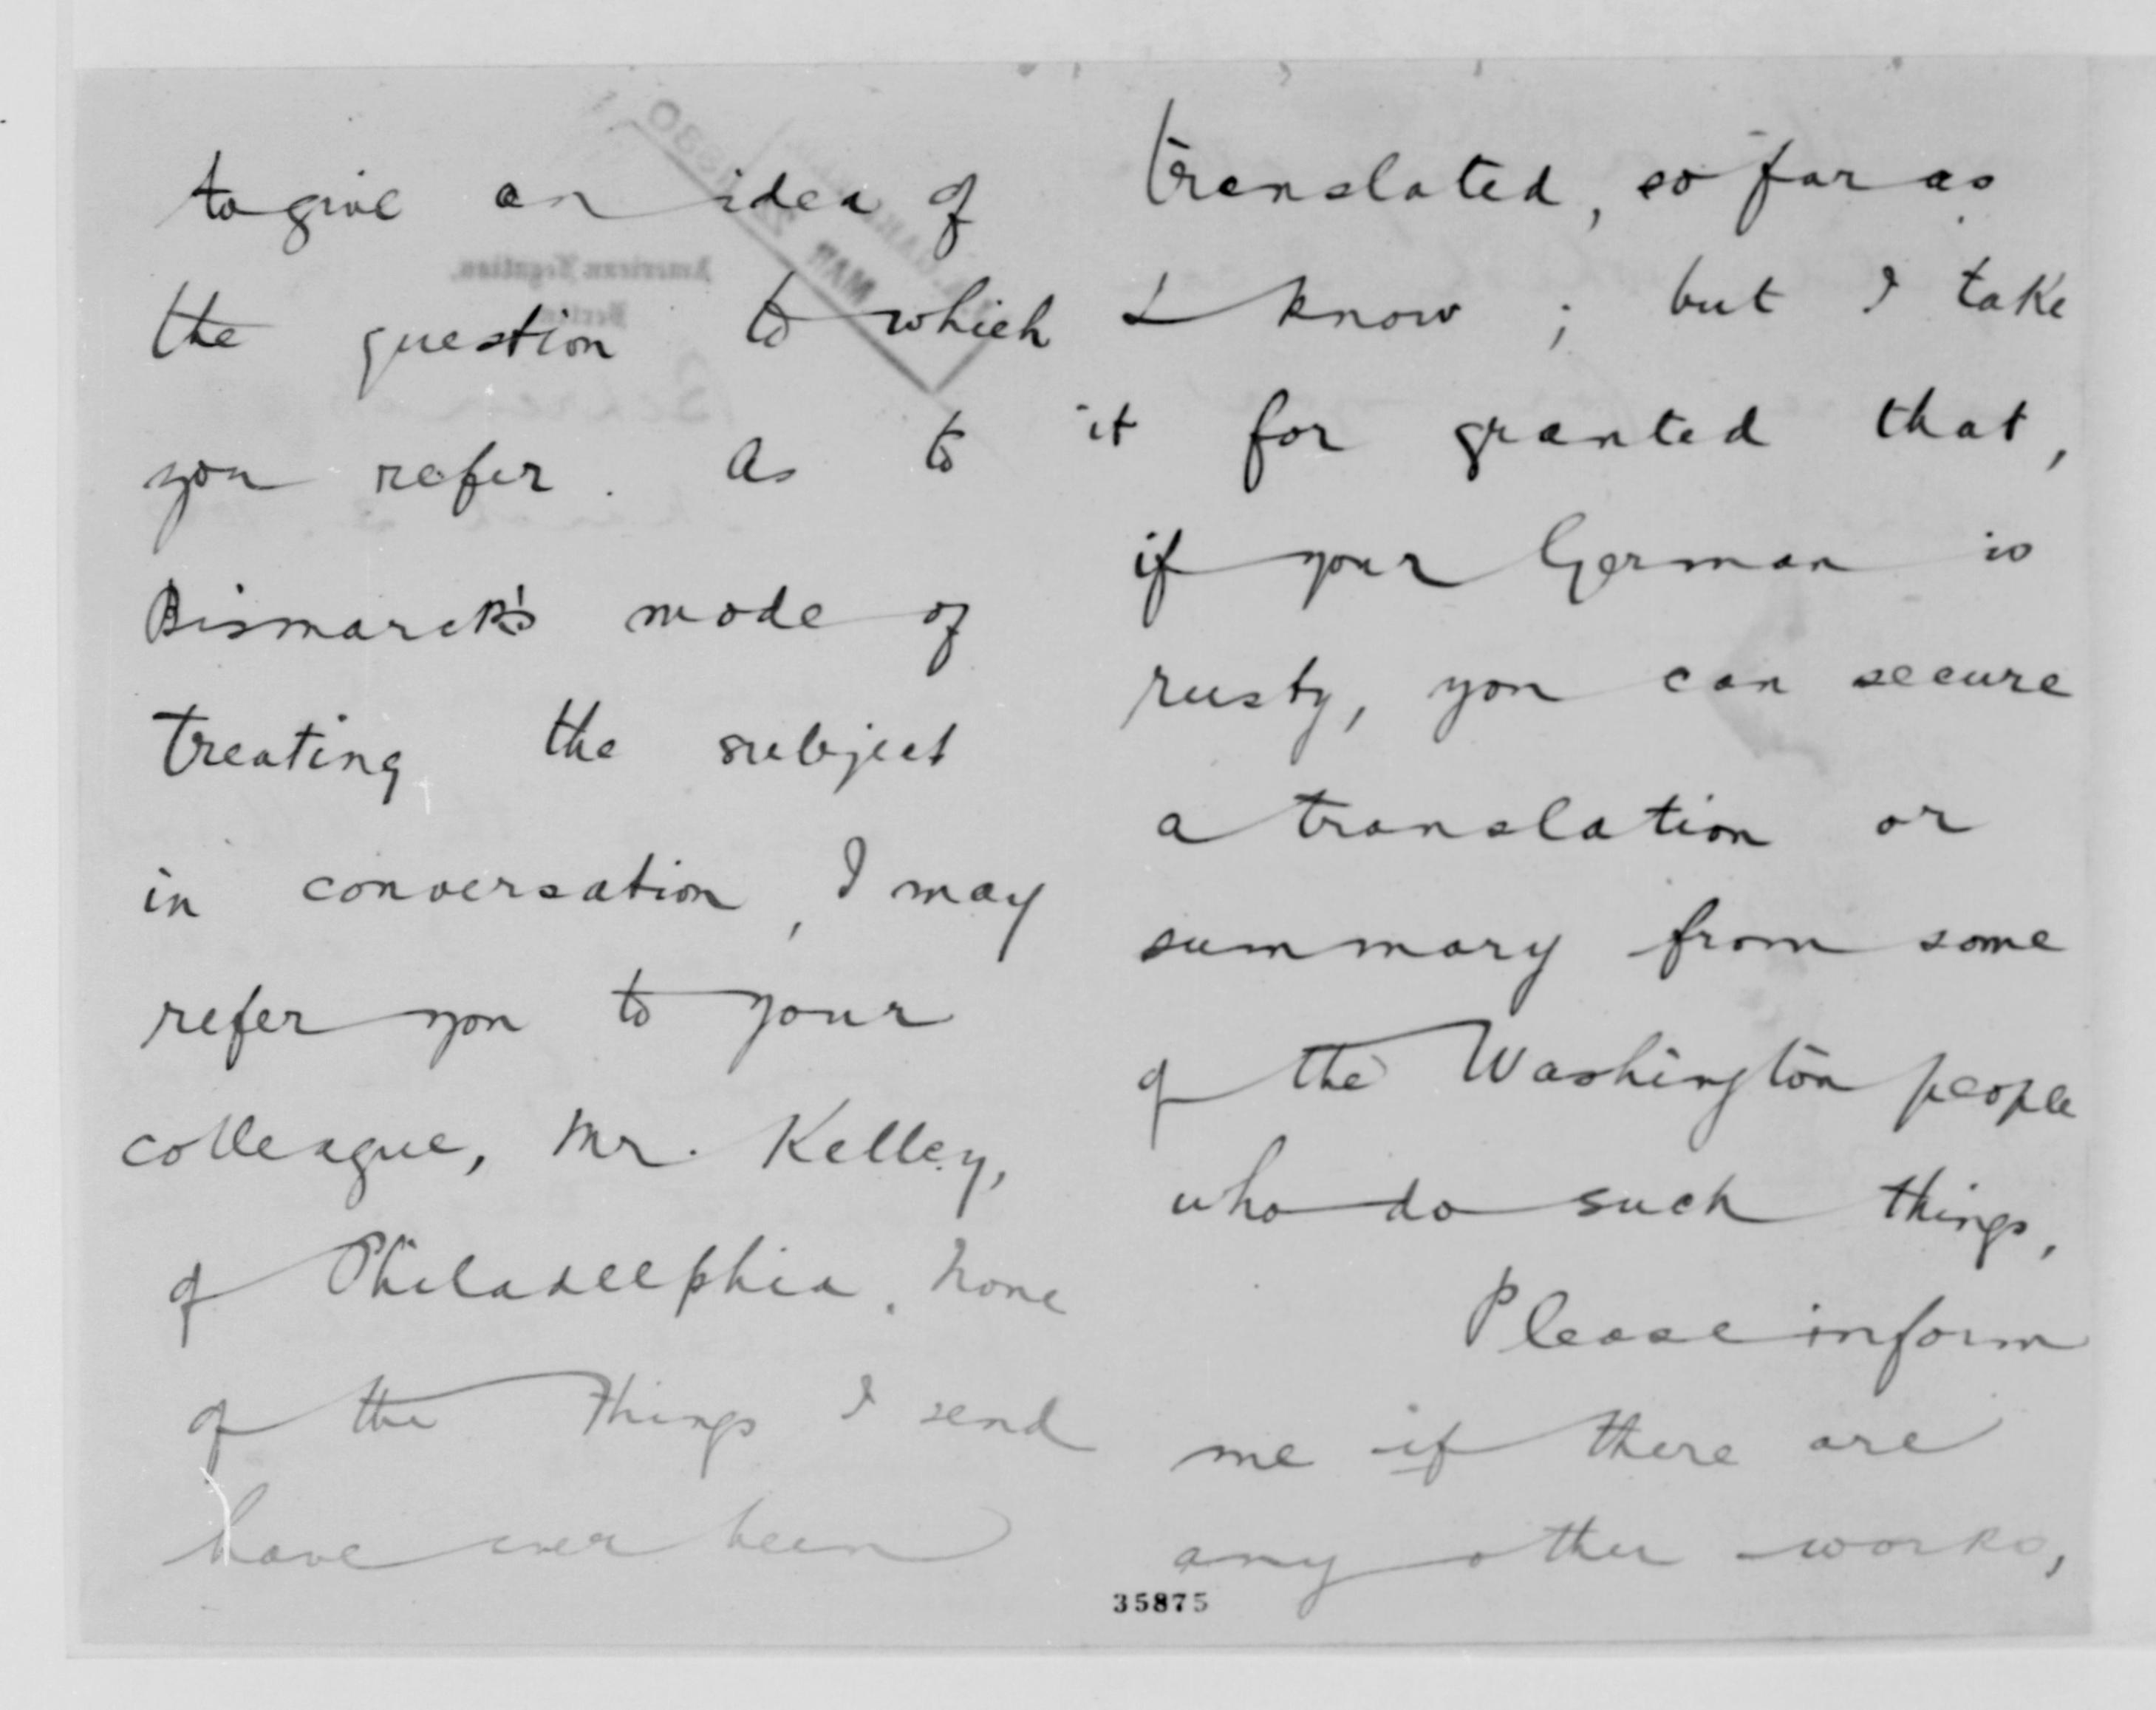 to give an idea of
the question to which
you refer. As to
Bismarck's mode of
treating the subject
in conversation, I may
refer you to your
colleague, Mr. Kelley,
of Philadelphia. None
of the things I send
have ever been
translated, so far as
I know; but I take
it for granted that,
if your German is
rusty, you can secure
a translation or
summary from some
of the Washington people
who do such things.
Please inform
me if there are
any other works,
35875
American Legation,
Berlin
MAR 22 1880